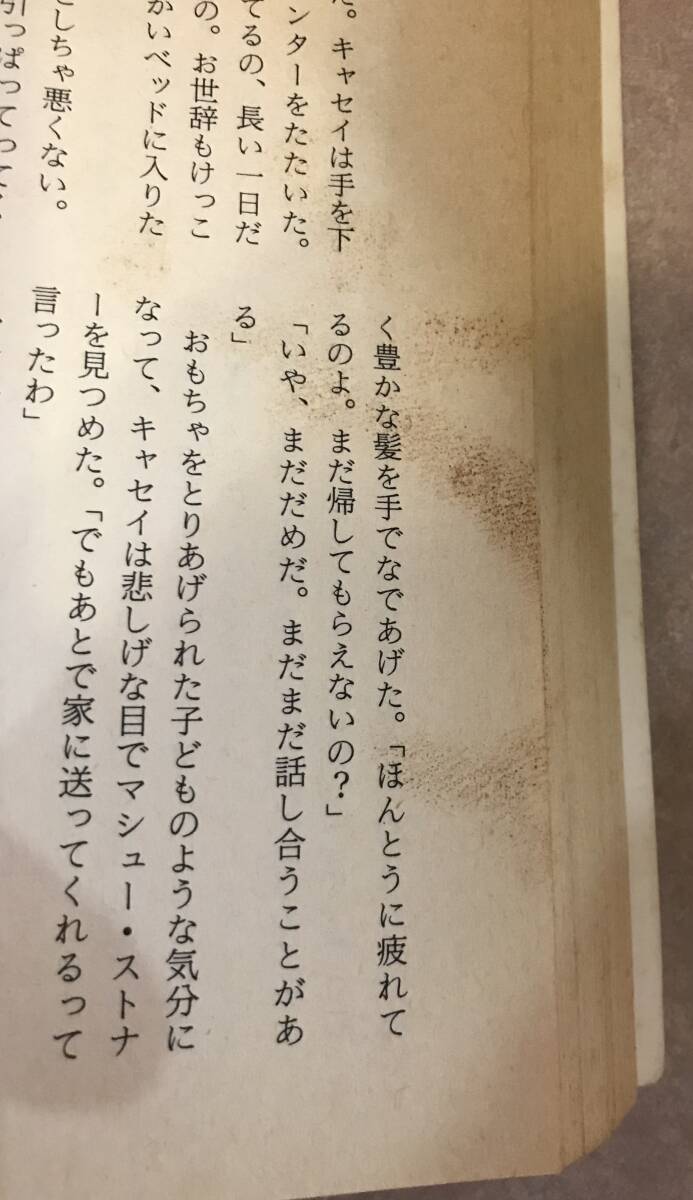 た。キャセイは手を下
ンターをたたいた。
てるの、長い一日だ
の。お世辞もけっこ
かいベッドに入りた
としちゃ悪くない。
引っぱってって、
く豊かな髪を手でなであげた。「ほんとうに疲れて
るのよ。まだ帰してもらえないの？」
「いや、まだだめだ。まだまだ話し合うことがあ
る」
おもちゃをとりあげられた子どものような気分に
なって、キャセイは悲しげな目でマシュー・ストナ
ーを見つめた。「でもあとで家に送ってくれるって
言ったわ」